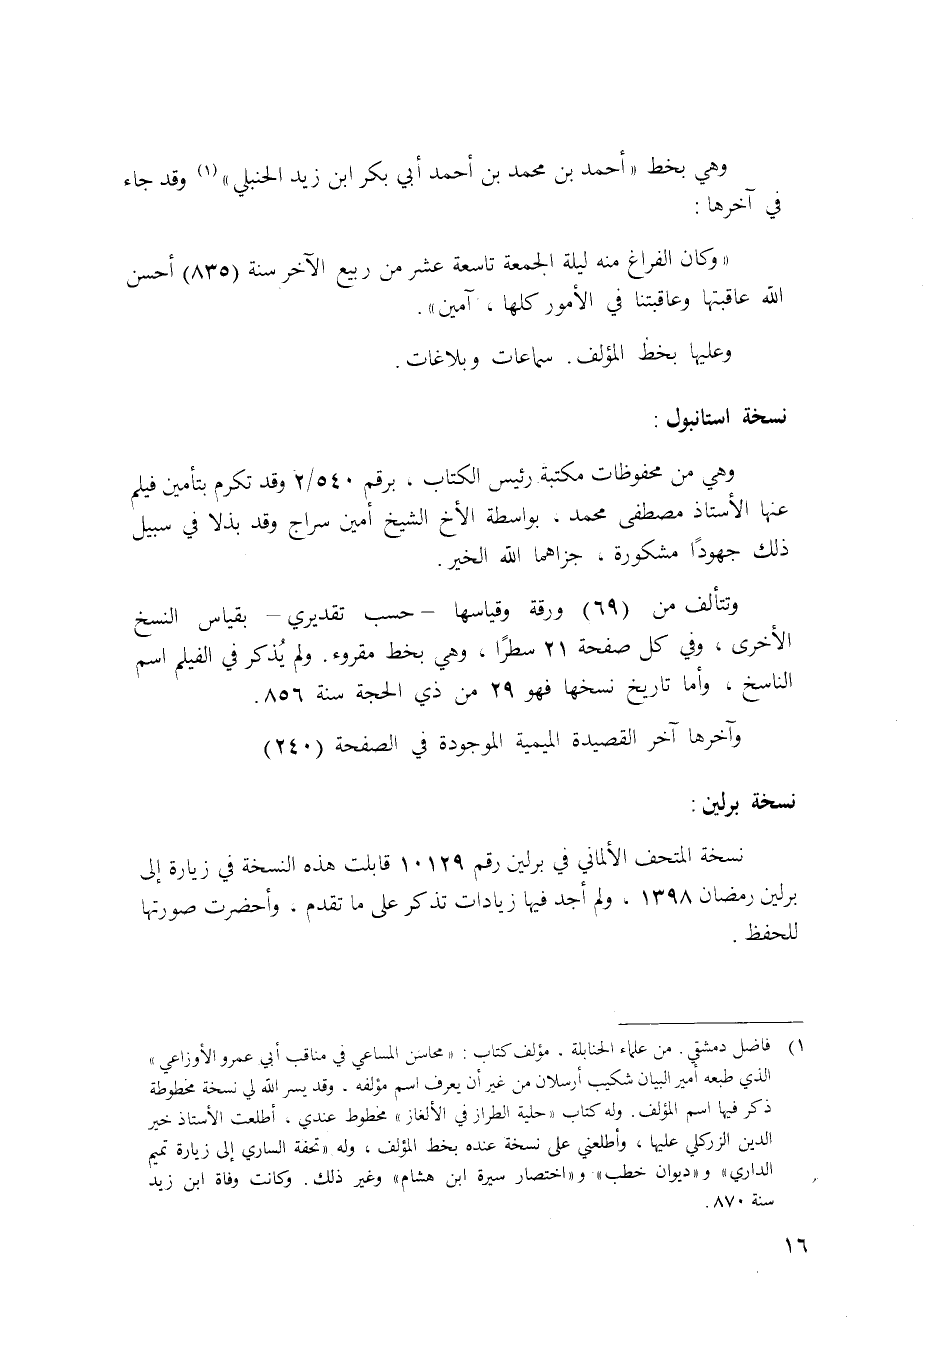 وهي بخط «أحمد بن محمد بن أحمد أبي بكر ابن زيد الحنبلي» (١) وقد جاء
في آخرها :
«وكان الفراغ منه ليلة الجمعة تاسعة عشر من ربيع الآخر سنة (٨٣٥) أحسن
الله عاقبتها وعاقبتنا في الأمور كلها ، آمين» .
وعليها بخط المؤلف . سماعات وبلاغات .
نسخة استانبول :
وهي من محفوظات مكتبة رئيس الكتاب ، برقم ٢/٥٤٠ وقد تكرم بتأمين فيلم
عنها الأستاذ مصطفى محمد . بواسطة الأخ الشيخ أمين سراج وقد بذلا في سبيل
ذلك جهودًا مشكورة ، جزاهما الله الخير .
وتتألف من (٦٩) ورقة وقياسها – حسب تقديري – بقياس النسخ
الأخرى ، وفي كل صفحة ٢١ سطرًا ، وهي بخط مقروء . ولم يُذكر في الفيلم اسم
الناسخ ، وأما تاريخ نسخها فهو ٢٩ من ذي الحجة سنة ٨٥٦ .
وآخرها آخر القصيدة الميمية الموجودة في الصفحة (٢٤٠)
نسخة برلين :
نسخة المتحف الألماني في برلين رقم ١٠١٢٩ قابلت هذه النسخة في زيارة إلى
برلين رمضان ١٣٩٨ ، ولم أجد فيها زيادات تذكر على ما تقدم . وأحضرت صورتها
للحفظ .
١) فاضل دمشقي . من علماء الحنابلة . مؤلف كتاب : «محاسن المساعي في مناقب أبي عمرو الأوزاعي»
الذي طبعه أمير البيان شكيب أرسلان من غير أن يعرف اسم مؤلفه . وقد يسر الله لي نسخة مخطوطة
ذكر فيها اسم المؤلف . وله كتاب «حلية الطراز في الألغاز» مخطوط عندي . أطلعت الأستاذ خير
الدين الزركلي عليها ، وأطلعني على نسخة عنده بخط المؤلف ، وله «تحفة الساري إلى زيارة تميم
الداري» و«ديوان خطب» و«اختصار سيرة ابن هشام» وغير ذلك . وكانت وفاة ابن زيد
سنة ٨٧٠ .
١٦